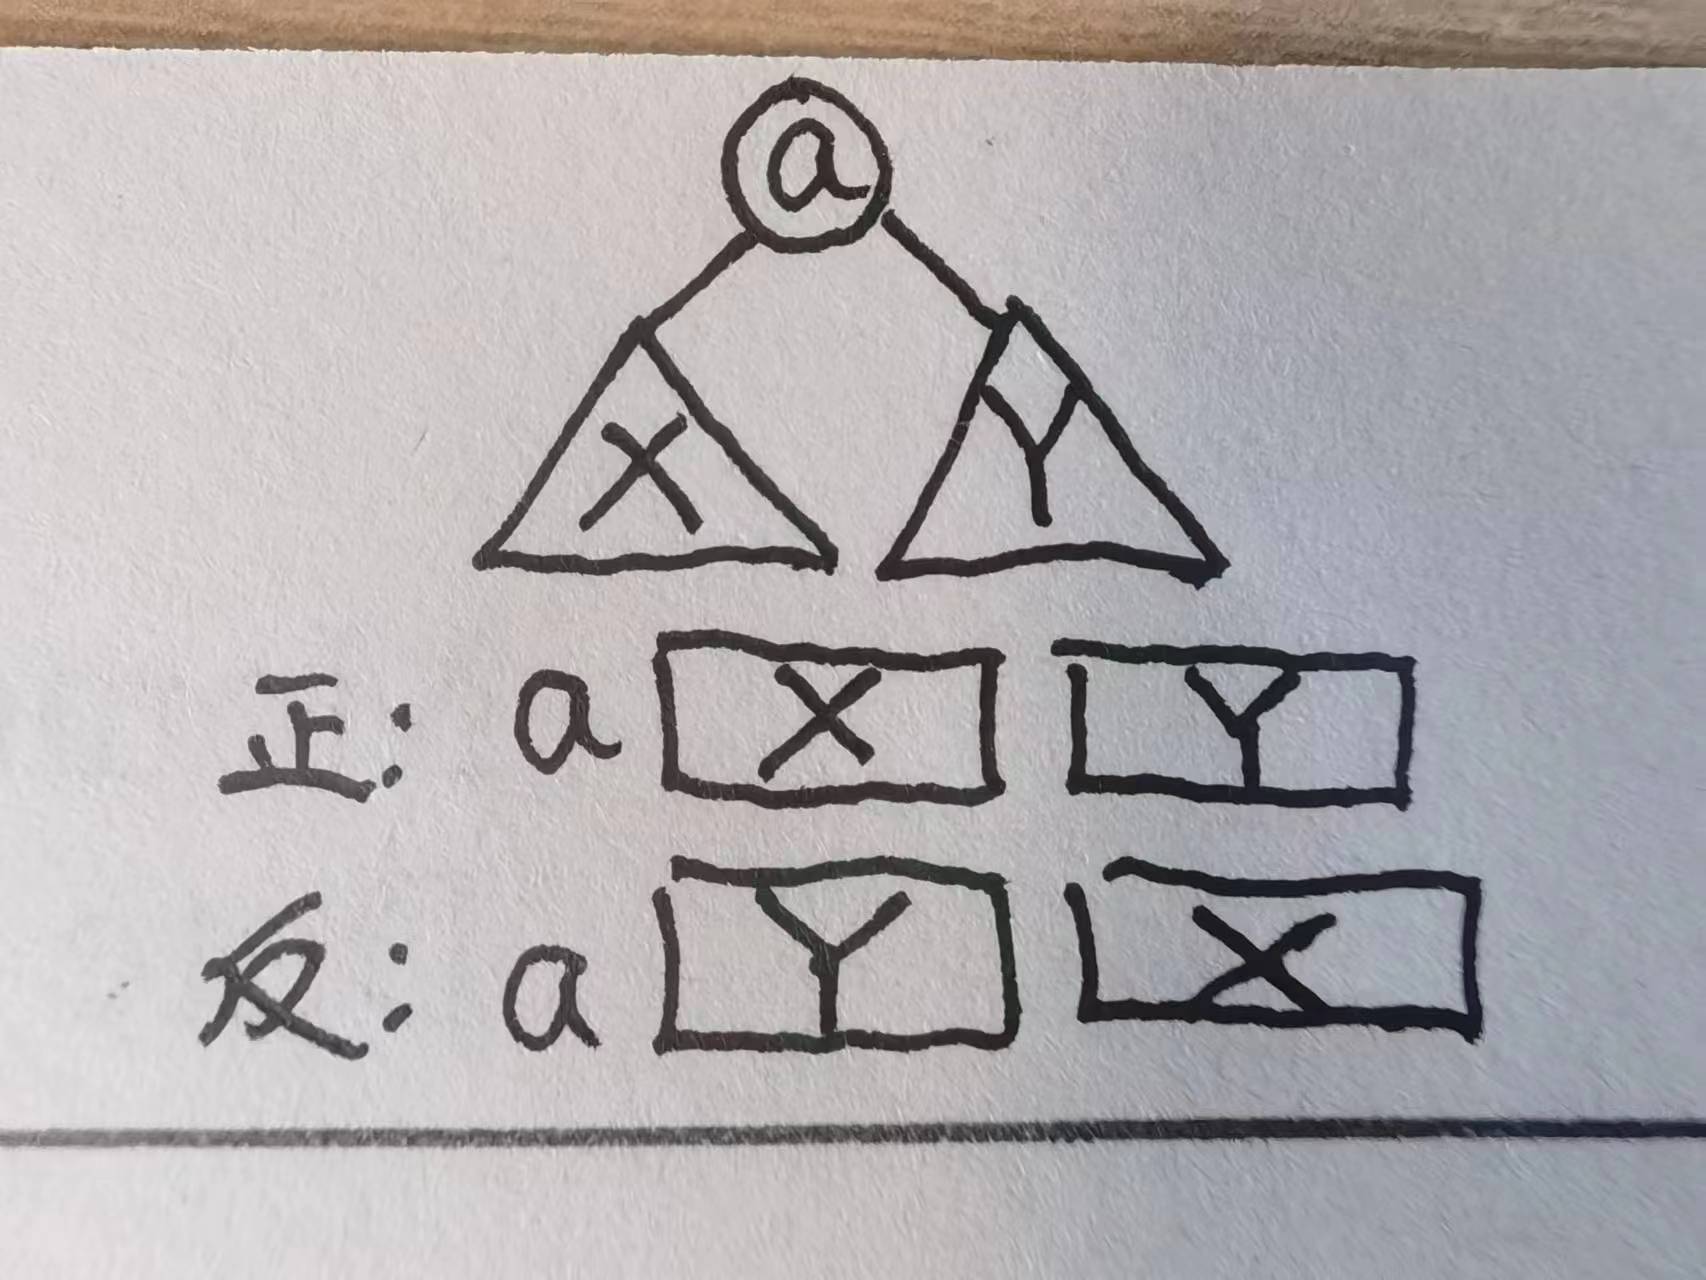 a
X Y
正: a X Y
反: a Y X